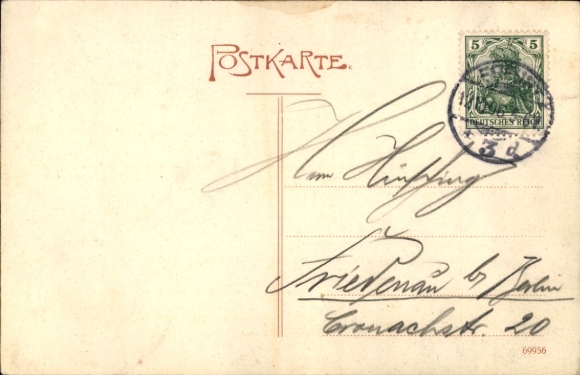 POSTKARTE.
5 5
DEUTSCHES REICH
3 d
Herrn
Friedenau b/ Berlin
Cronachstr. 20
69956